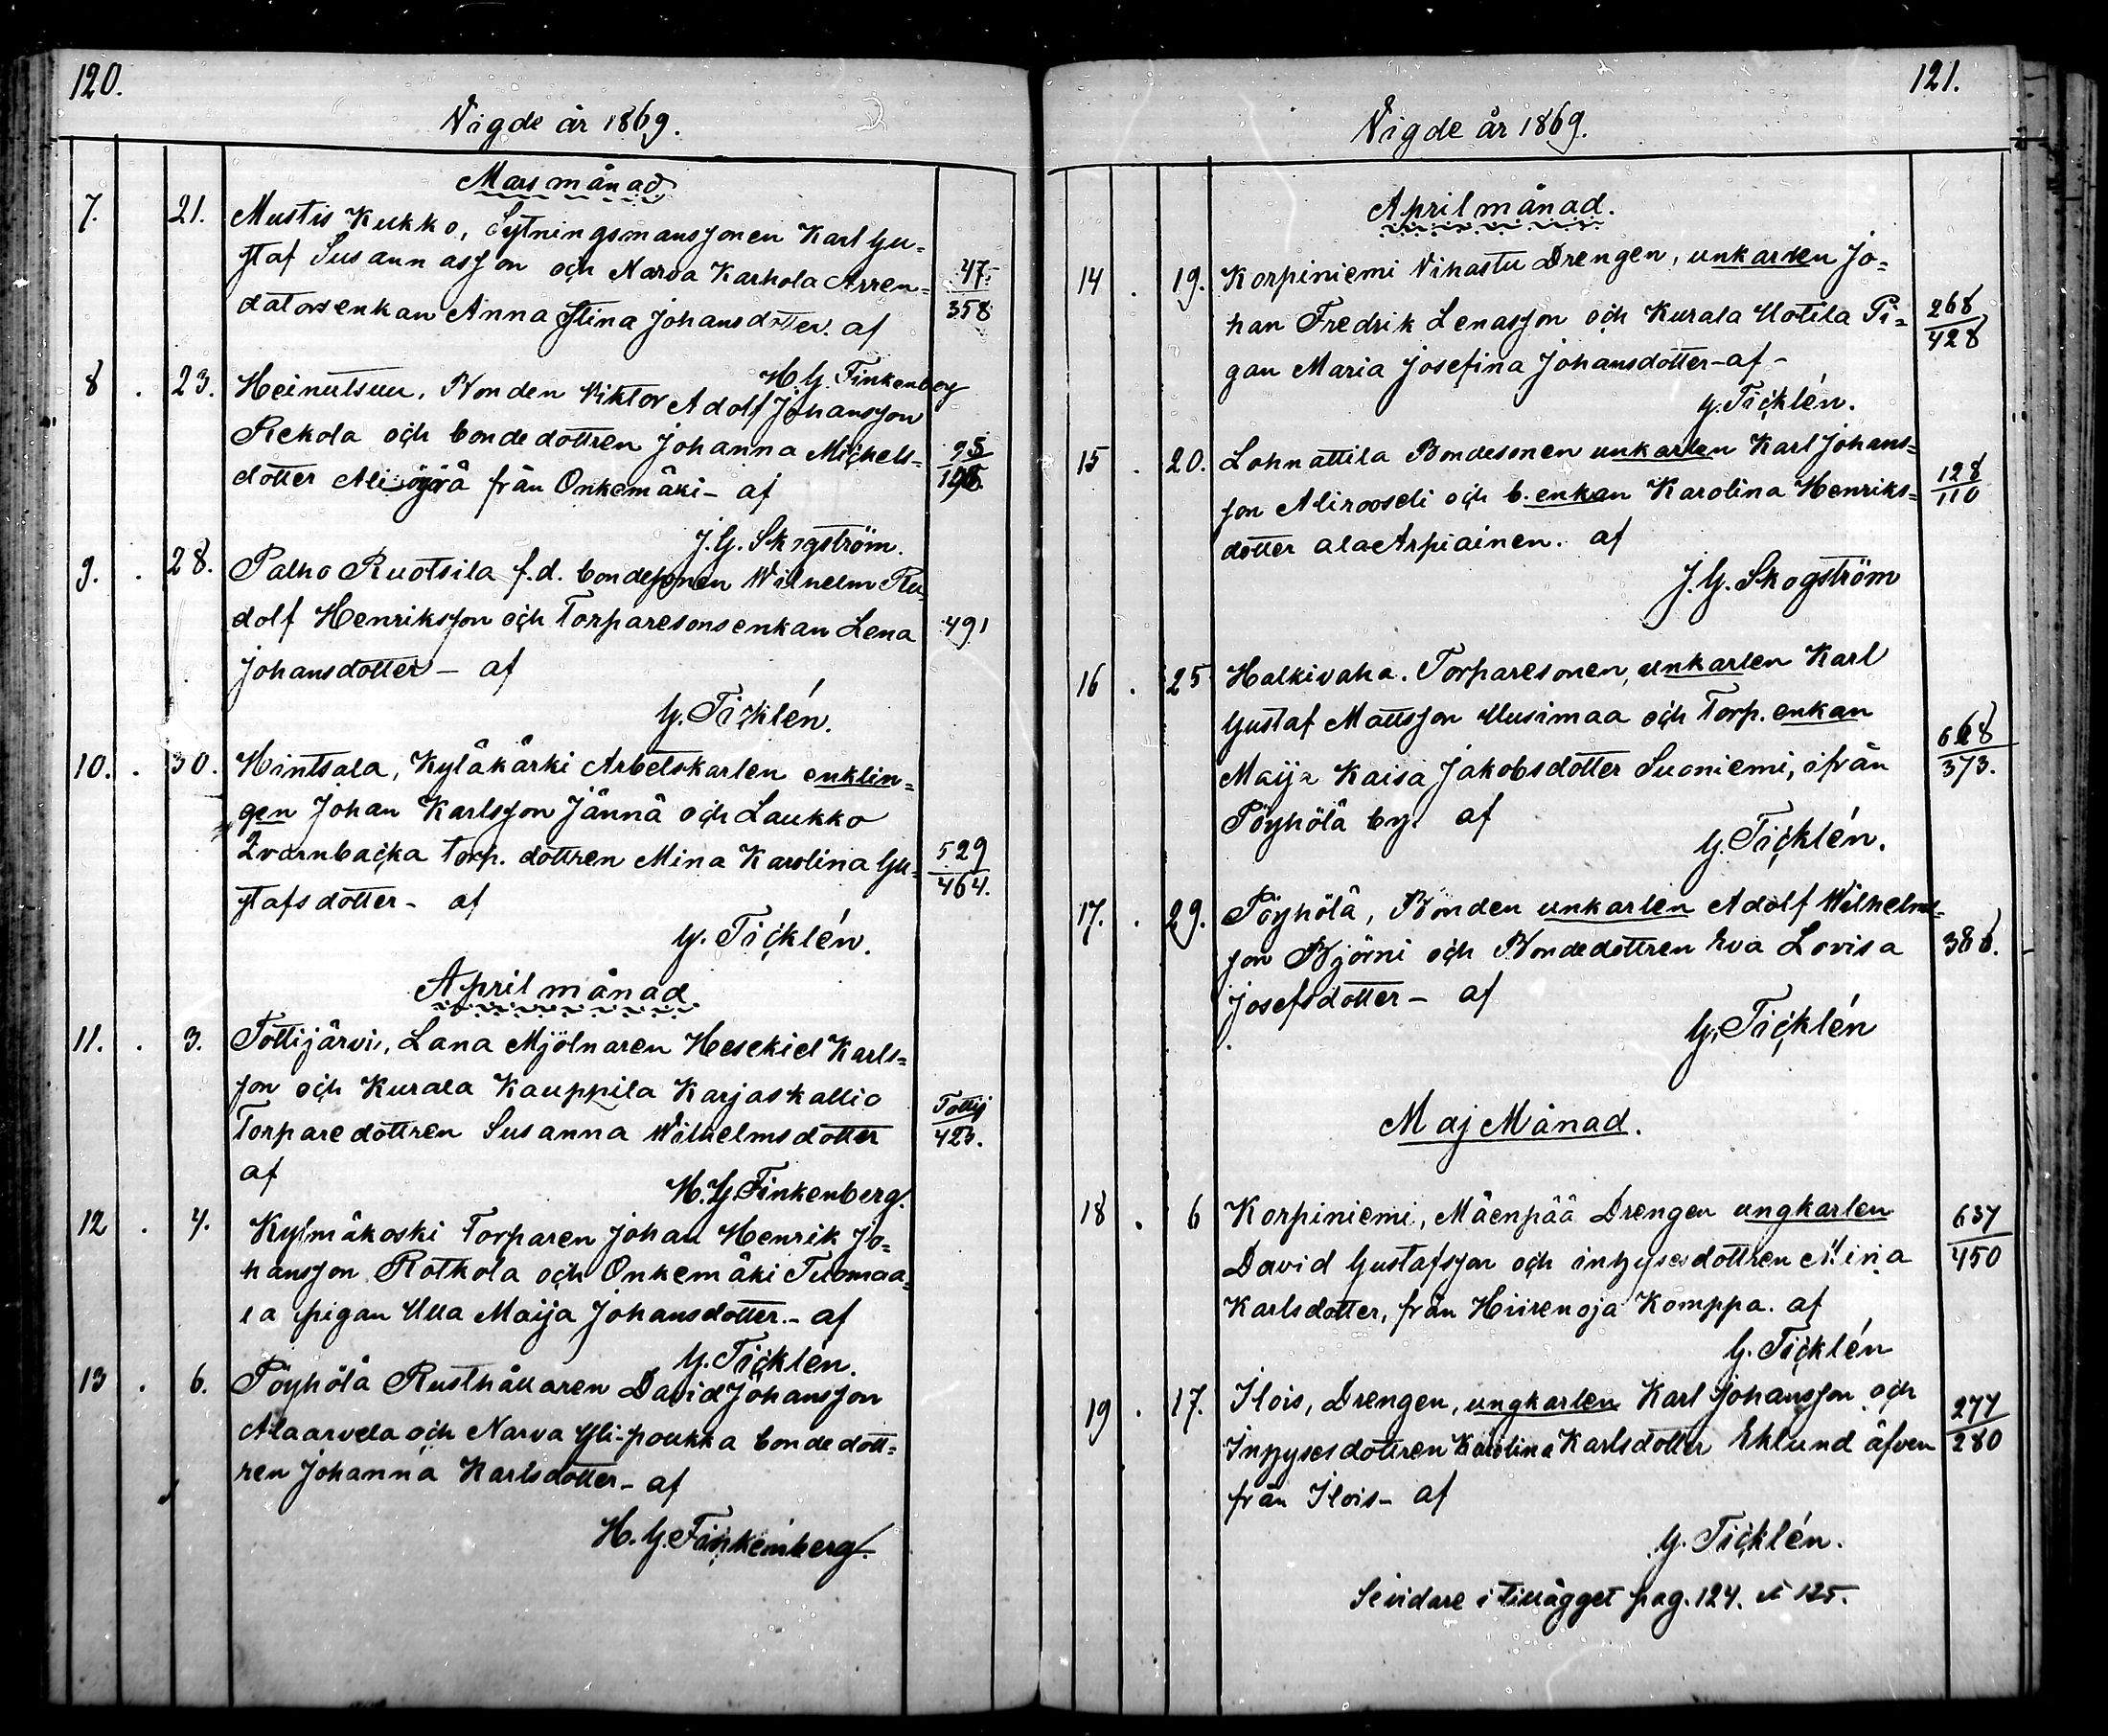 120.
Vigde år 1869.
Mars månad
7. 21. Mustis Kukko, Sytningsmanssonen Karl Gu=
staf Susannasson och Narva Karhola Arren= 47.
datorsenkan Anna Stina Johansdotter. af 358
H. G. Finkenberg
8 . 23. Heinutsuu, Bonden Viktor Adolf Johansson
Rekola och bondedottren Johanna Michels= 95
dotter Aliöyrä från Onkemäki – af
J. G. Skogström.
9. . 28. Palho Ruotsila f.d. bondesonen Wilhelm Ru=
dolf Henriksson och Torparesonsenkan Lena 491
Johansdotter – af
G. Ticklén.
10. . 30. Hintsala, Kyläkärki Arbetskarlen enklin=
gen Johan Karlsson Jännä och Laukko
Qvarnbacka torp. dottren Mina Karolina Gu= 529
stafsdotter – af 464.
G. Ticklén.
April månad
11. . 3. Tottijärvi, Lana Mjölnaren Hesekiel Karls=
son och Kurala Kauppila Karjaskallio Tottij
Torparedottren Susanna Wilhelmsdotter 423.
af
H. G. Finkenberg.
12 . 4. Kylmäkoski Torparen Johan Henrik Jo=
hansson Rotkola och Onkemäki Tuomaa=
la pigan Ulla Maija Johansdotter. – af
G. Ticklén.
13 . 6. Pöyhölä Rusthållaren David Johansson
Alaarvela och Narva Yli-poukka bondedott=
ren Johanna Karlsdotter – af
H. G. Finkenberg.
121.
Vigde år 1869.
April månad.
14 . 19. Korpiniemi Vihastu Drengen, unkarlen Jo=
han Fredrik Lenasson och Kurala Uotila Pi= 268
gan Maria Josefina Johansdotter – af – 428
G. Ticklén.
15 . 20. Lohnattila Bondesonen unkarlen Karl Johans= 128
son Alirooseli och b. enkan Karolina Henriks= 110
dotter ala Arpiainen. af
J. G. Skogström
16 . 25 Halkivaha. Torparesonen, unkarlen Karl
Gustaf Mattsson Uusimaa och Torp. enkan
Maija Kaisa Jakobsdotter Suoniemi, ifrån 373.
Pöyhölä by. af
G. Ticklén.
17. . 29. Pöyhölä, Bonden unkarlen Adolf Wilhelms=
son Björni och Bondedottren Eva Lovisa 386.
Josefsdotter – af
G. Ticklén
Maj Månad.
18 . 6 Korpiniemi, Mäenpää Drengen ungkarlen 637
David Gustafsson och inhysesdottren Mina 450
Karlsdotter, från Hiirenoja Komppa. af
G. Ticklén
19 . 17. Ilois, Drengen, ungkarlen Karl Johansson och 277
Inhysesdottren Karolina Karlsdotter Eklund äfven 280
från Ilois – af
G. Ticklén.
Se vidare i Tillägget pag. 124. & 125.